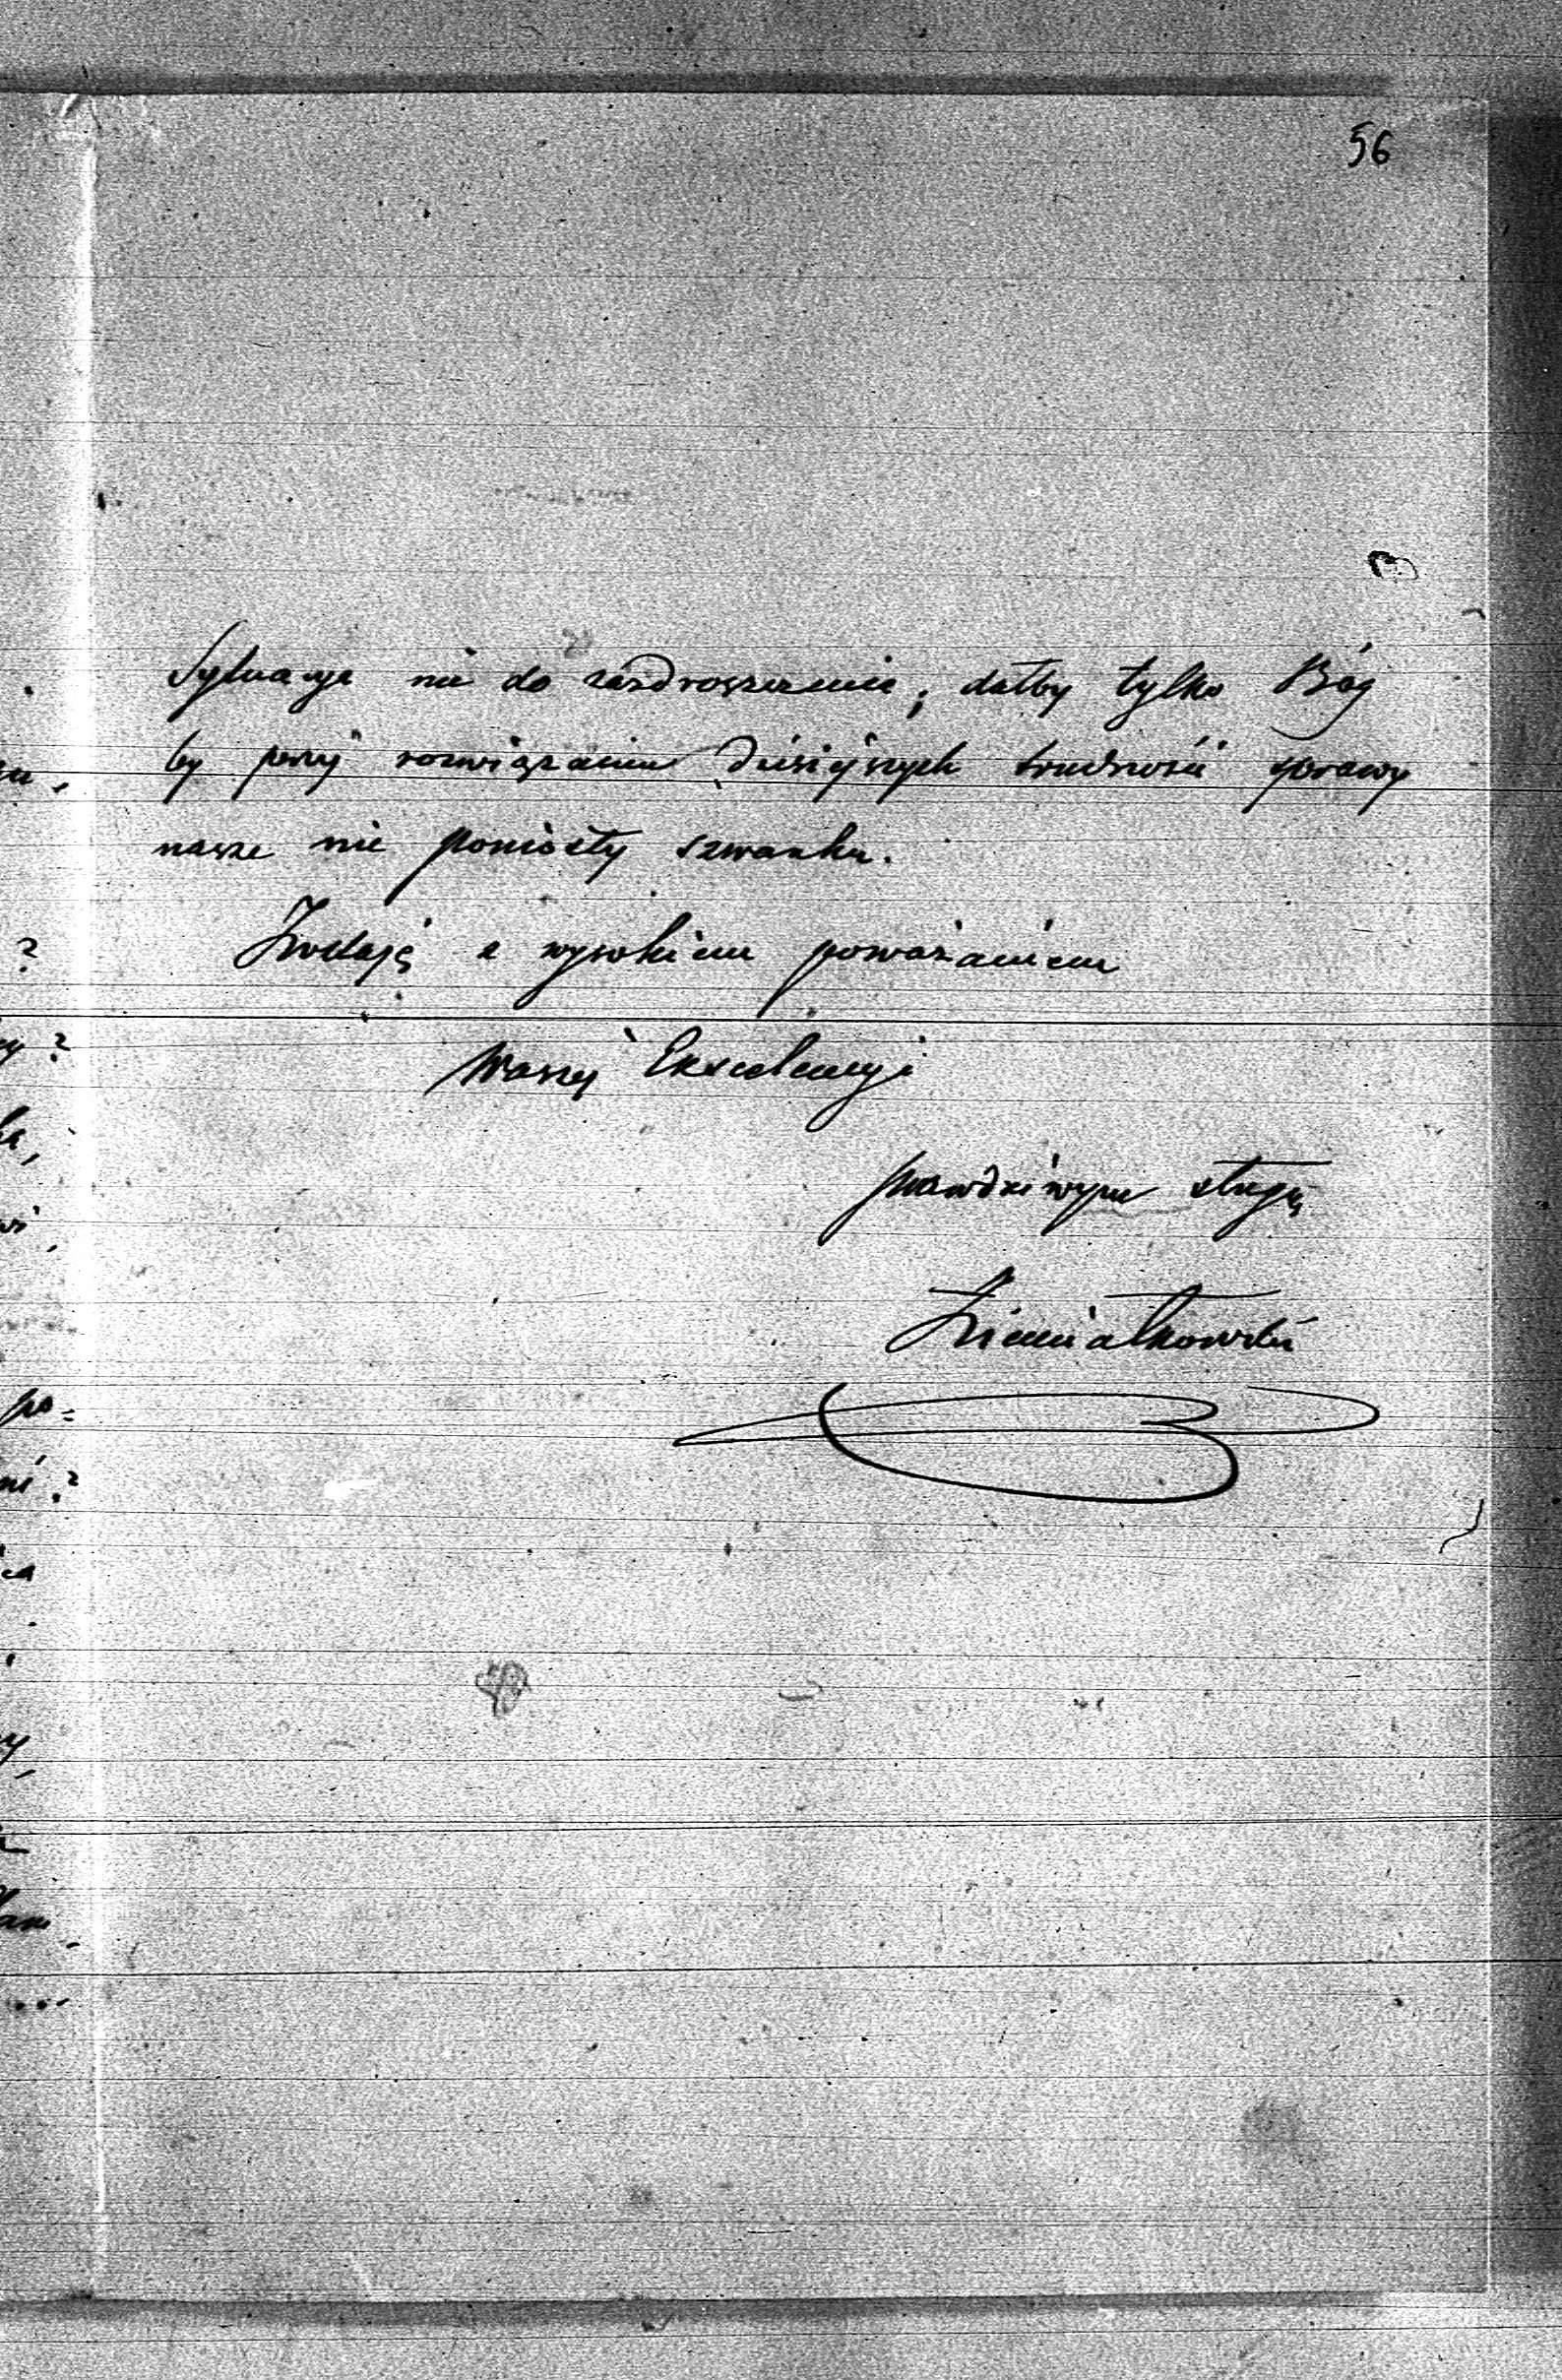 56
Sytuacya nie do zazdroszczenia; dałby tylko Bóg
by przy rozwiązaniu dzisiejszych trudności sprawy
nasze nie poniosły szwanku.
Zostaję z wysokiem poważaniem
Waszej Excelencyi
prawdziwym sługą
Ziemiałkowski